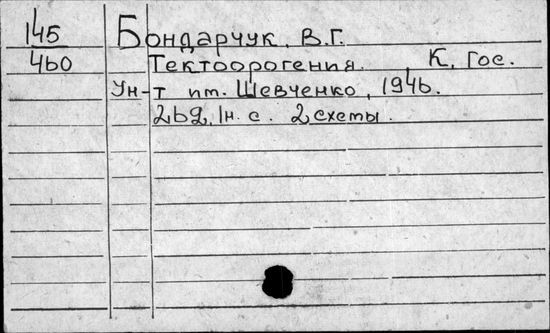 145
460
Бондарчук, В.Г.
Тектоорогения. К, Гос.
Ун-т им. Шевченко, 1946.
262, 1н. с. 2 схемы.